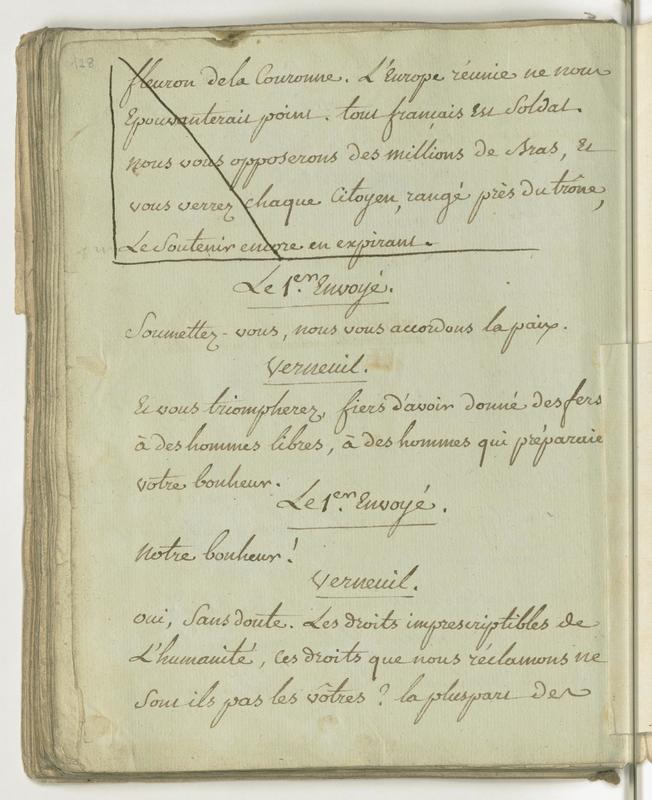 128
fleuron dela Couronne. L'Europe réunie ne nous
Epouvanterait point. tout français Est Soldat.
nous vous opposerons des millions de Bras, Et
vous verrez chaque Citoyen, rangé près du trône,
Le Soutenir encore en expirant.
Le 1er. Envoyé.
Soumettez-vous, nous vous accordons la paix.
Verneuil.
Et vous triompherez, fiers d'avoir donné des fers
à des hommes libres, à des hommes qui préparaie
votre bonheur.
Le 1er. Envoyé.
Notre bonheur!
Verneuil.
oui, Sans doute. Les droits imprescriptibles de
L'humanité, ces droits que nous réclamons ne
Sont ils pas les vôtres? la pluspart des